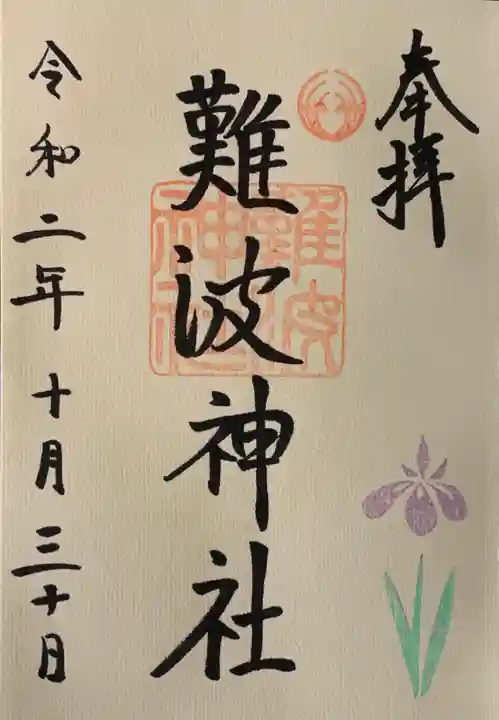 奉拝
難波神社
難波
神社
令和二年十月三十日